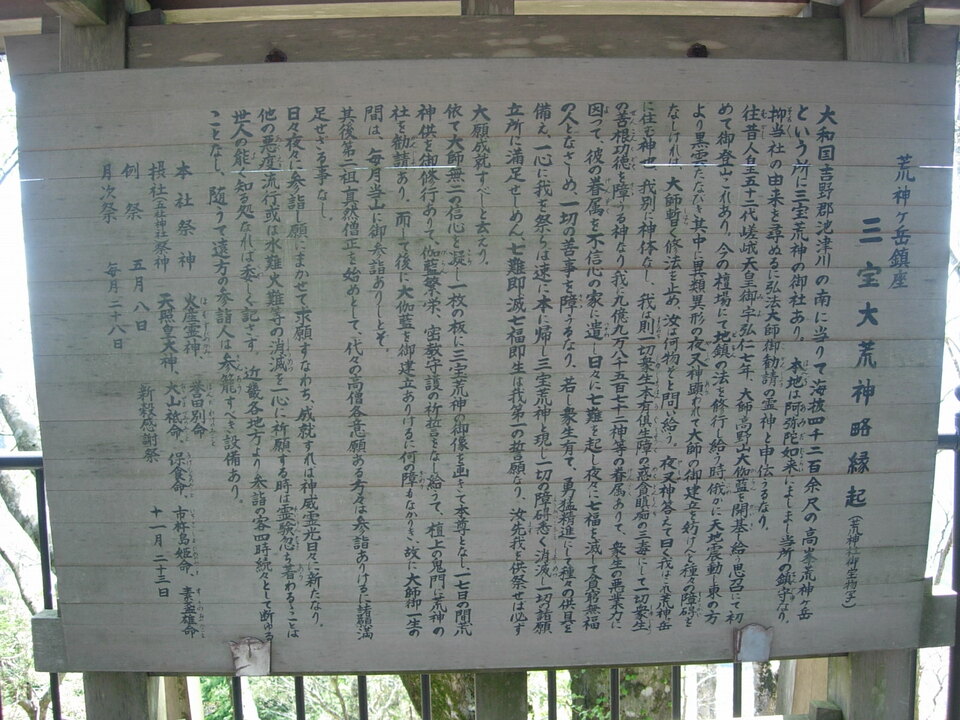 荒神ヶ岳鎮座
三宝大荒神略縁起(荒神社御生物写)
大和国吉野郡池津川の南に当りて海抜四千二百余尺の高峯荒神ヶ岳
という所に三宝荒神の御社あり。本地は阿弥陀如来にましまし当所の鎮守なり。
抑当社の由来を尋ぬるに弘法大師御勧請の霊神と申伝うるなり。
往昔人皇五十二代嵯峨天皇御宇弘仁七年、大師高野山大伽藍を開基し給い思召にて初
めて御登山これあり、今の檀場にて地鎮の法を修行し給う時俄かに天地震動し東の方
より黒雲たなびき其中に異類異形の夜叉神顕れて大師の御建立を妨げんと種々障碍を
なしければ、大師暫く修法を止め、汝は何物ぞと問い給う。夜叉神答えて曰く我はこれ荒神岳
に住む神也、我別に神体なし、我は則一切衆生本有倶生障の惑貪瞋痴の三毒にして一切衆生
の善根功徳を障る神なり我に九億九万八千五百七十二神等の眷属ありて、衆生の悪業力に
因って彼の眷属を不信心の家に遣し日々に七難を起し夜々に七福を滅して貪窮無福
の人となさしめ、一切の苦事を障うるなり、若し衆生有て、勇猛精進にして種々の供具を
備え、一心に我を祭らば速に本に帰し三宝荒神と現し一切の障碍悉く消滅し一切諸願
立所に満足せしめん、七難即滅七福即生は我第一の誓願なり、汝先我を供祭せば必ず
大願成就すべしと云えり。
依て大師無二の信心を凝し一枚の板に三宝荒神の御像を画きて本尊となし、一七日の間荒
神供を御修行あって、伽藍繁栄、密教守護の祈誓をなし給うて、檀上の鬼門に荒神の
社を勧請あり、而して後に大伽藍を御建立ありけるに何の障もなかりき、故に大師御一生の
間は、毎月当山に御参詣ありしとぞ。
其後第二祖真然僧正を始めとして、代々の高僧各意願ある方々は参詣ありけるに諸願満
足せざる事なし。
日々夜々に参詣し願にまかせて求願すなわち、感就すれば神威霊光日々に新たなり。
他の悪疫流行或は水難火難等の消滅を一心に祈願する時は霊験忽を著わること は
世人の能く知る処なれば委しく記さず。近畿各地方より参詣の客四時続々として断ゆる
ことなし、随うて遠方の参詣人は参籠すべき設備あり。
本社祭神 火産霊神、誉田別命
摂社(五社神社)祭神 天照皇大神、大山祇命、保食命、市杵島姫命、素盞雄命
例祭 五月八日 新穀感謝祭 十一月二十三日
月次祭 毎月二十八日